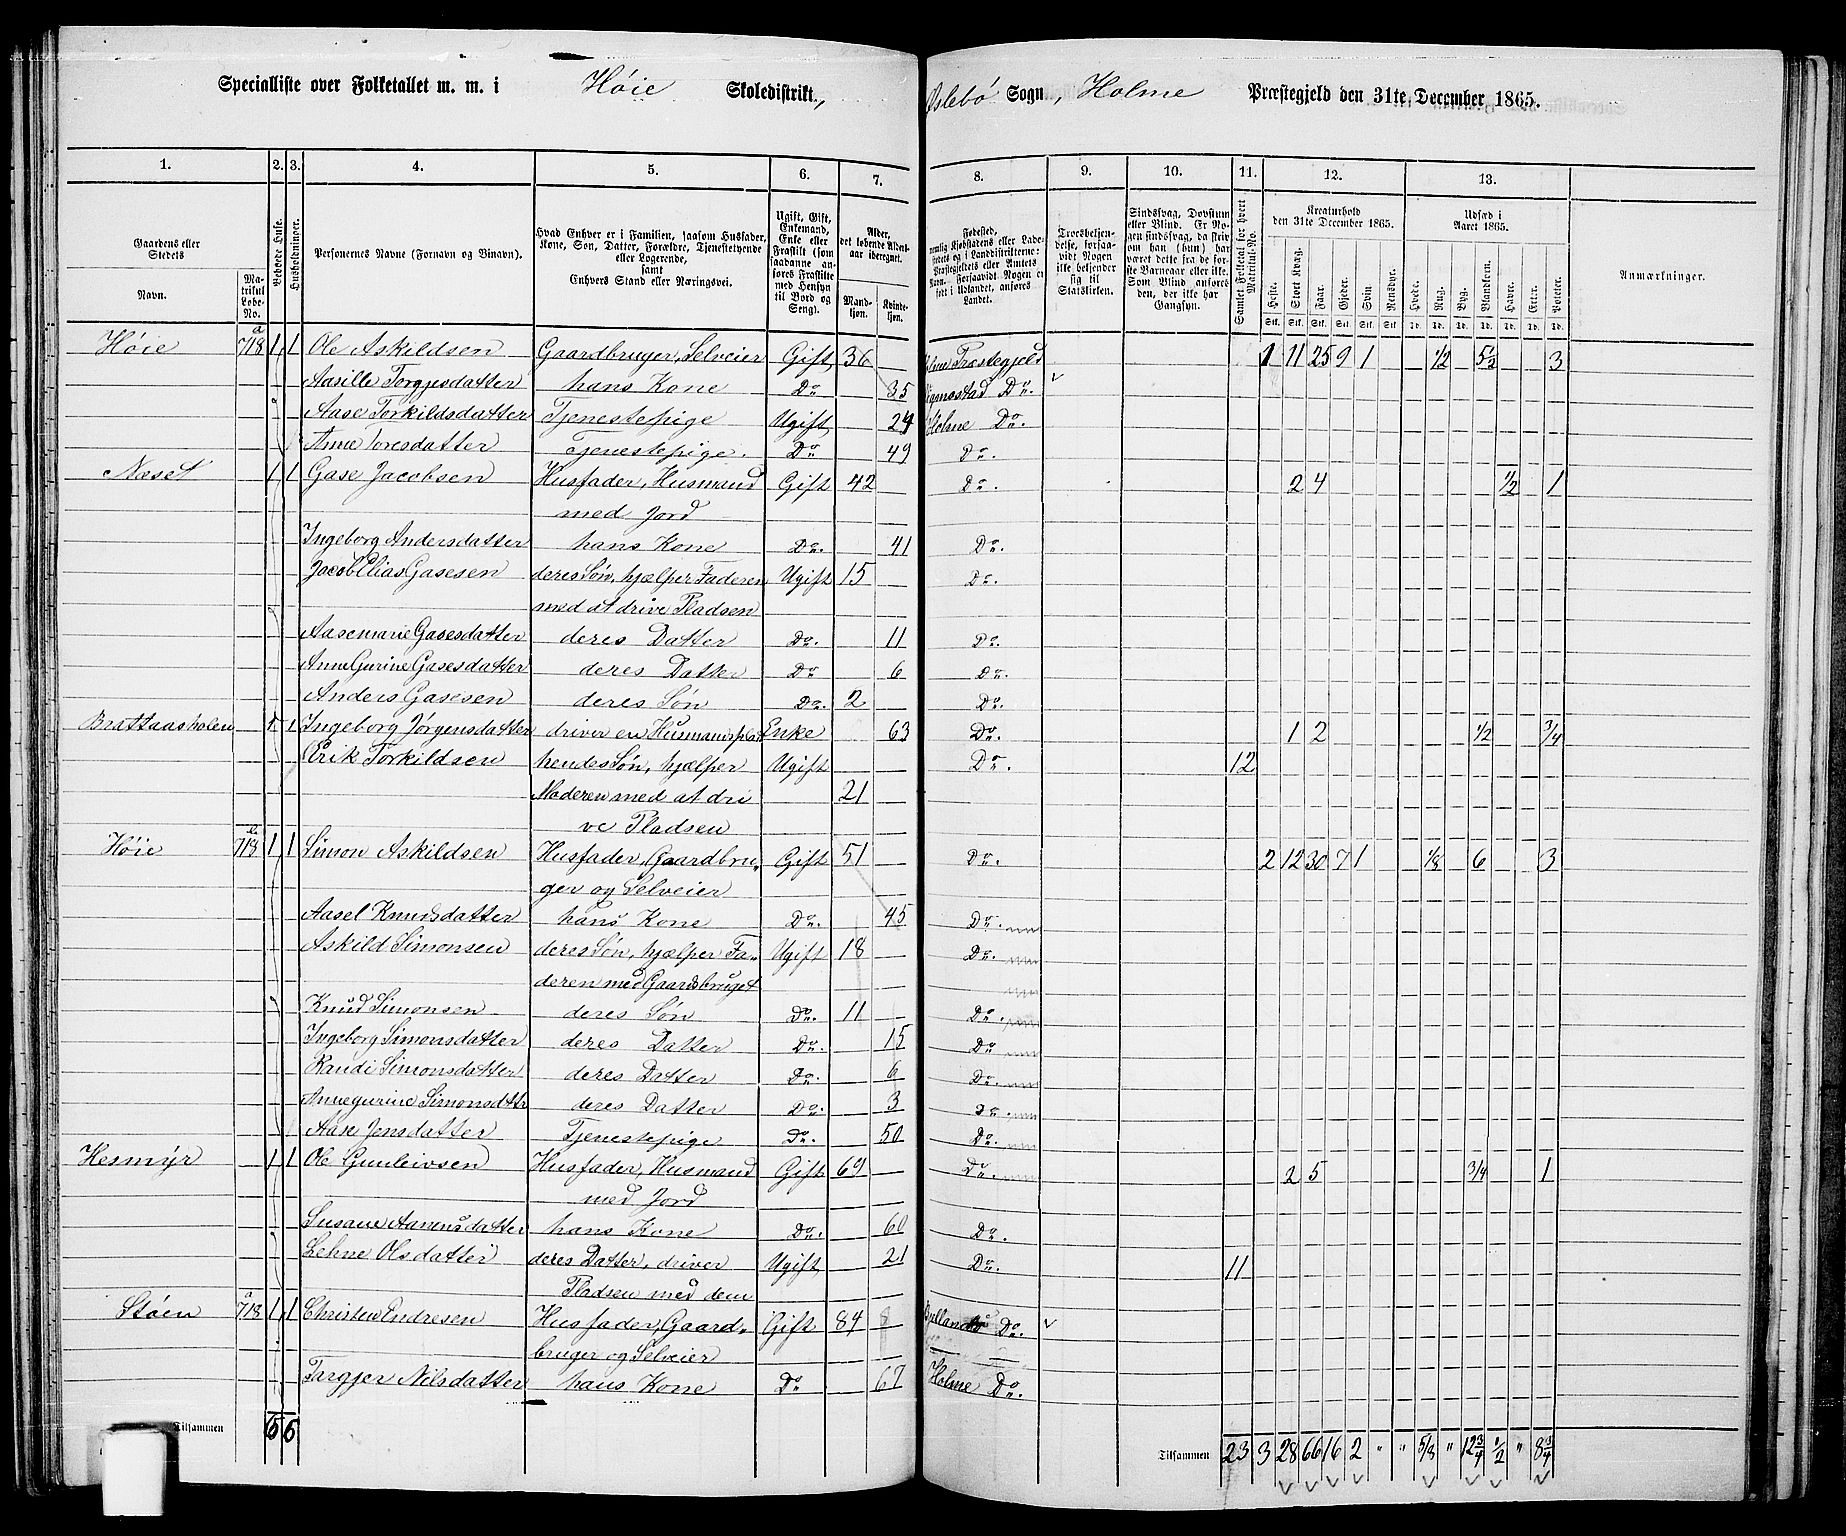 Specialliste over Folketallet m. m. i Høie Skoledistrikt, Øslebø Sogn, Holme Præstegjeld den 31te December 1865.
1. 2. 3. 4. 5. 6. 7. 8. 9. 10. 11. 12. 13.
Gaardens eller Stedets Navn.
Matrikul Løbe-No.
Beboede Huse.
Husholdninger.
Personernes Navne (Fornavn og Tilnavn).
Hvad Enhver er i Familien, saasom Husfader, Kone, Søn, Datter, Forældre, Tjenestetyende eller Logerende, samt Enhvers Stand eller Næringsvei.
Ugift, Gift, Enkemand, Enke eller Fraskilt (som saadanne anføres Fraskilte med Hensyn til Bord og Seng).
Alder, det løbende Aldersaar iberegnet.
Mandkjøn. Kvindekjøn.
Fødested,
Troesbekjendelse, forsaavidt Nogen ikke bekjender sig til Statskirken.
Sindssvag, Døvstum eller Blind. Er Nogen sindssvag, da skriv om han (hun) har været dette fra de første Barneaar eller ikke. Som Blind anføres den, der ikke har Gangsyn.
Samlet Folketal for hvert Matrikul-No.
Kreaturhold den 31te December 1865.
Heste. Stort Kvæg. Faar. Gjeder. Svin. Rensdyr.
Udsæd i Aaret 1865.
Hvede. Rug. Byg. Blandkorn. Havre. Erter. Poteter.
Anmærkninger.
Høie 718 a 1 1 Ole Askildsen Gaardbruger, Selveier Gift 36 Holme Præstegjeld 1 11 25 9 1 1/2 5 1/2 3
Aasille Torgjesdatter hans Kone Do 35 Do.
Aase Torkildsdatter Tjenestepige Ugift 24 Holme Do.
Anne Toresdatter Tjenestepige. Do 49 Do.
Næset 1 1 Gase Jacobsen Husfader, Husmand Gift 42 Do. 2 4 1/2 1
med Jord
Ingeborg Andersdatter hans Kone Do. 41 Do.
Jacob Elias Gasesen deres Søn, hjælper Faderen Ugift 15 Do.
med at drive Pladsen
Aasemarie Gasesdatter deres Datter Do. 11 Do.
Anne Gurine Gasesdatter deres Datter Do 6 Do.
Anders Gasesen deres Søn Do. 2 Do.
Brattaasholen 1 1 Ingeborg Jørgensdatter driver en Husmandsplads Enke 63 Do. 1 2 1/2 3/4
Erik Torkildsen hendes Søn, hjælper Ugift Do. 12
Moderen med at dri 21
ve Pladsen
Høie 718 1 1 Simon Askildsen Husfader, Gaardbru- Gift 51 Do. 2 12 30 7 1 1/8 6 3
ger og Selveier
Aasel Knudsdatter hans Kone Do. 45 Do.
Askild Simonsen deres Søn, hjælper Fa- Ugift 18 Do.
deren med Gaardsbruget
Knud Simonsen deres Søn Do. 11 Do.
Ingeborg Simonsdatter deres Datter Do. 15 Do
Randi Simonsdatter deres Datter Do. 6 Do.
Annegurine Simonsdatr deres Datter Do. 3 Do.
Aase Jensdatter Tjenestepige Do. 50 Do.
Hesmyr 1 1 Ole Gunleivsen Husfader, Husmand Gift 69 Do. 2 5 3/4 1
med Jord
Susane Aanensdatter hans Kone Do. 60 Do.
Lehne Olsdatter deres Datter, driver Ugift 21 Do. 11
Pladsen med dem
Støen 718 1 1 Christen Endresen Husfader, Gaard- Gift 84 Do.
bruger og Selveier
Torgjer Nilsdatter hans Kone Do 67 Holme Do.
Tilsammen 6 6
Tilsammen 23 3 28 66 16 2 " " 5/8 " 12 3/4 1/2 " 8 3/4